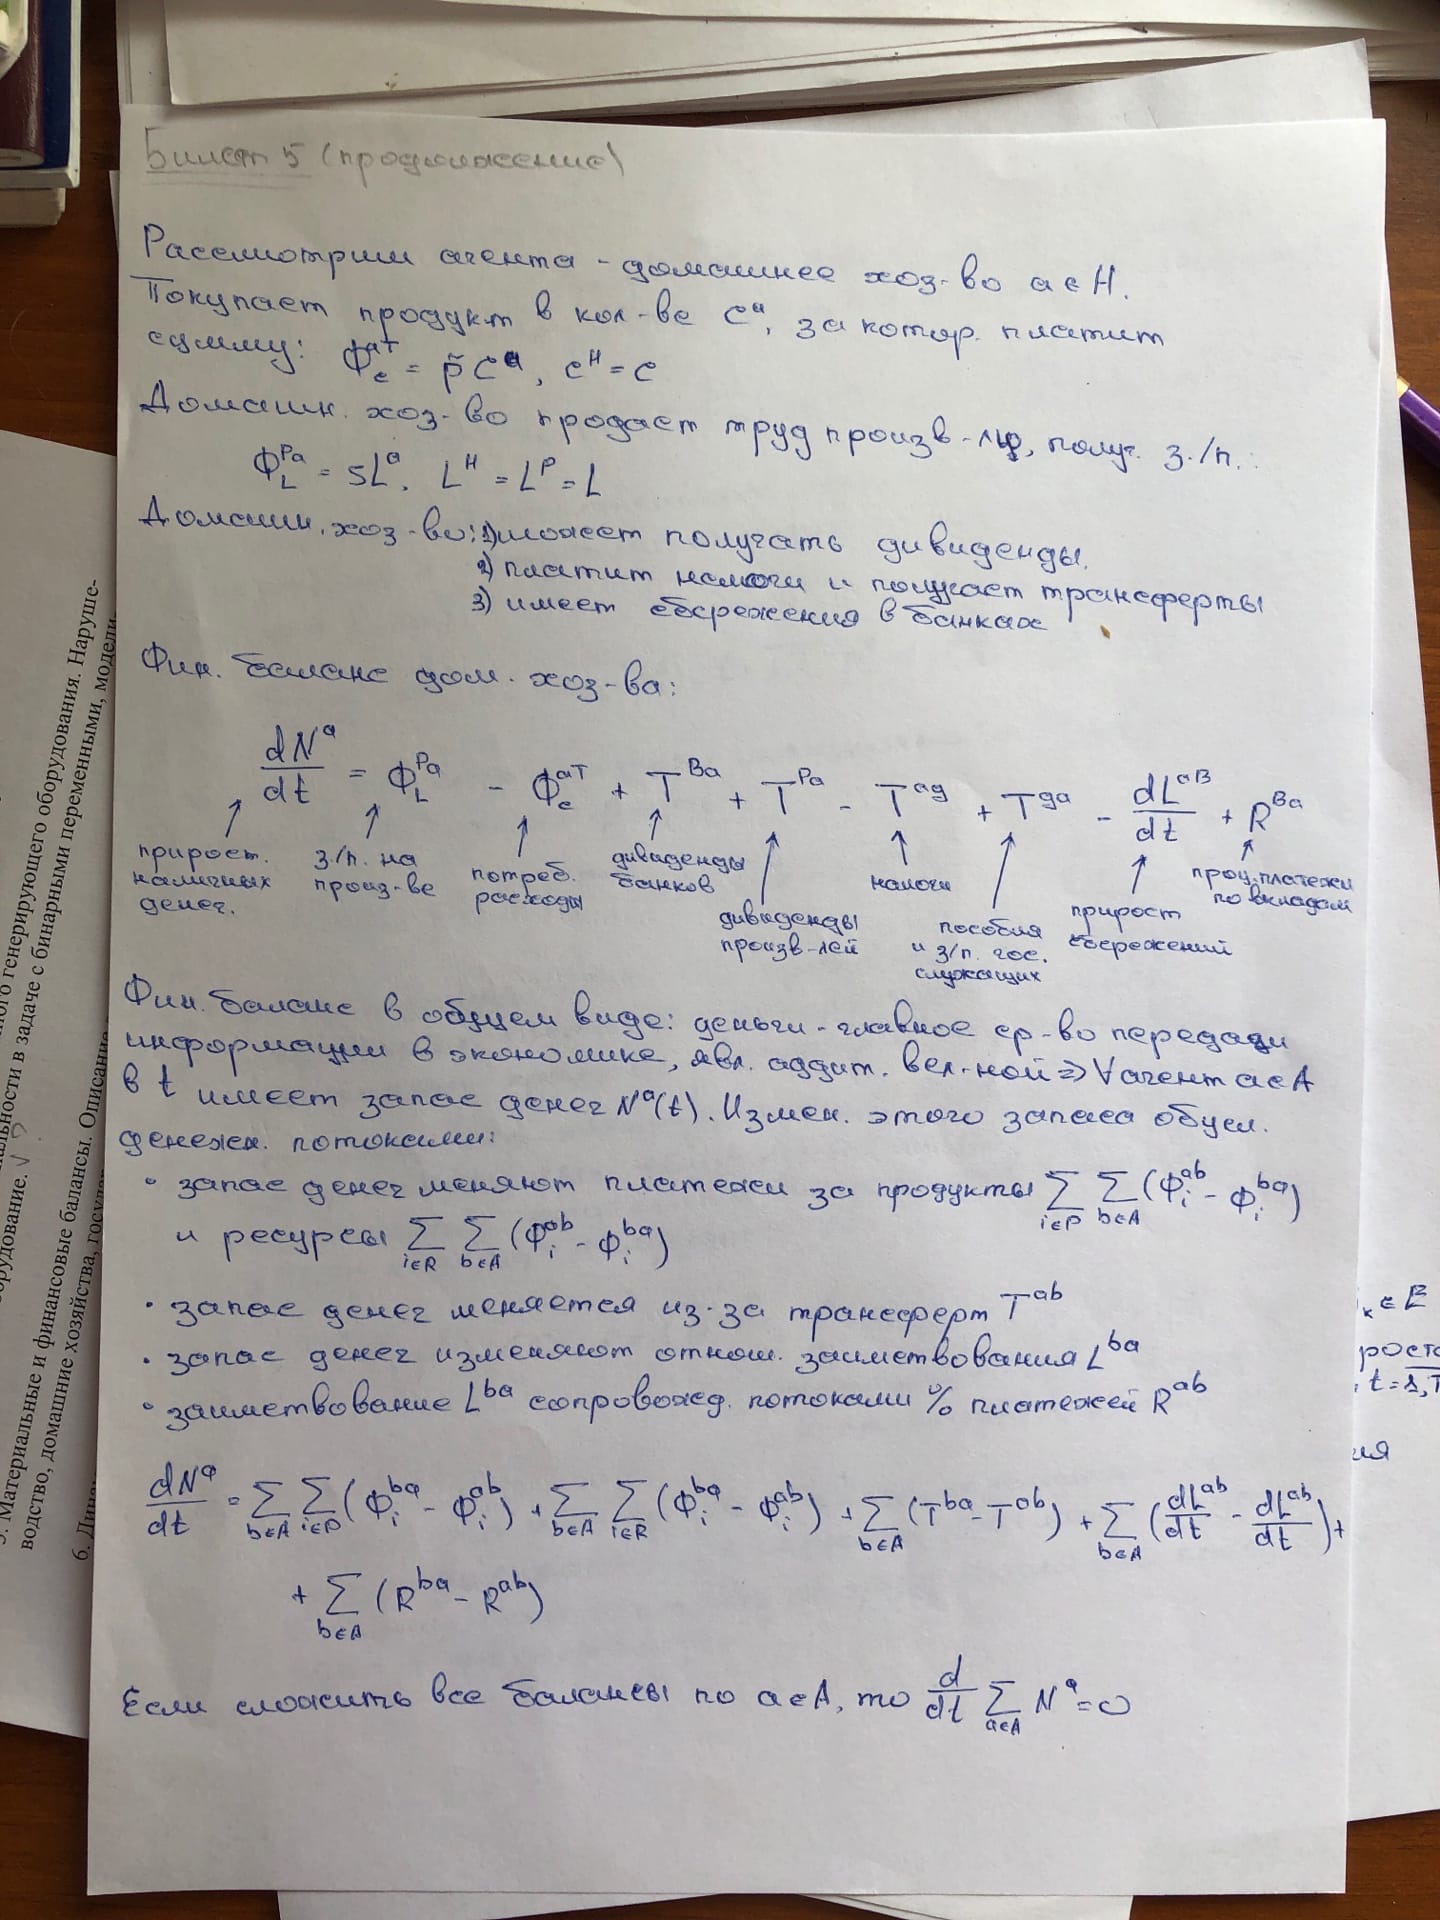 Билет 5 (продолжение)
Рассмотрим агента - домашнее хоз-во a∈H.
Покупает продукт в кол-ве C^a, за котор. платит
сумму: Φ_c^{aT} = p̃C^a, C^H = C
Домашн. хоз-во продает труд произв-лю, получ. з./п.:
Φ_L^{Pa} = sL^a, L^H = L^P = L
Домашн. хоз-во: 1) может получать дивиденды.
2) платит налоги и получает трансферты
3) имеет сбережения в банках
Фин. баланс дом. хоз-ва:
dN^a/dt = Φ_L^{Pa} - Φ_c^{aT} + T^{Ba} + T^{Pa} - T^{ag} + T^{ga} - dL^{aB}/dt + R^{Ba}
прирост. наличных денег.
з./п. на произ-ве
потреб. расходы
дивиденды банков
дивиденды произв-лей
налоги
пособия и з/п. гос. служащих
прирост сбережений
проц. платежи по вкладам
Фин. баланс в общем виде: деньги - главное ср-во передачи
информации в экономике, явл. аддит. вел-ной ⇒ ∀ агент a∈A
в t имеет запас денег N^a(t). Измен. этого запаса обусл.
денежн. потоками:
• запас денег меняют платежи за продукты ∑_{i∈P} ∑_{b∈A} (Φ_i^{ab} - Φ_i^{ba})
и ресурсы ∑_{i∈R} ∑_{b∈A} (Φ_i^{ab} - Φ_i^{ba})
• запас денег меняется из-за трансферт T^{ab}
• запас денег изменяют отнош. заимствования L^{ba}
• заимствование L^{ba} сопровожд. потоками % платежей R^{ab}
dN^a/dt = ∑_{b∈A} ∑_{i∈P} (Φ_i^{ba} - Φ_i^{ab}) + ∑_{b∈A} ∑_{i∈R} (Φ_i^{ba} - Φ_i^{ab}) + ∑_{b∈A} (T^{ba} - T^{ab}) + ∑_{b∈A} (dL^{ab}/dt - dL^{ab}/dt) +
+ ∑_{b∈A} (R^{ba} - R^{ab})
Если сложить все балансы по a∈A, то d/dt ∑_{a∈A} N^a = 0
ного генерирующего оборудования. Наруше-
альности в задаче с бинарными переменными, модели
орудование.
5. Материальные и финансовые балансы. Описание
водство, домашние хозяйства, госуда
6. Дина
k ∈ E
роста
t = 1,T
ия